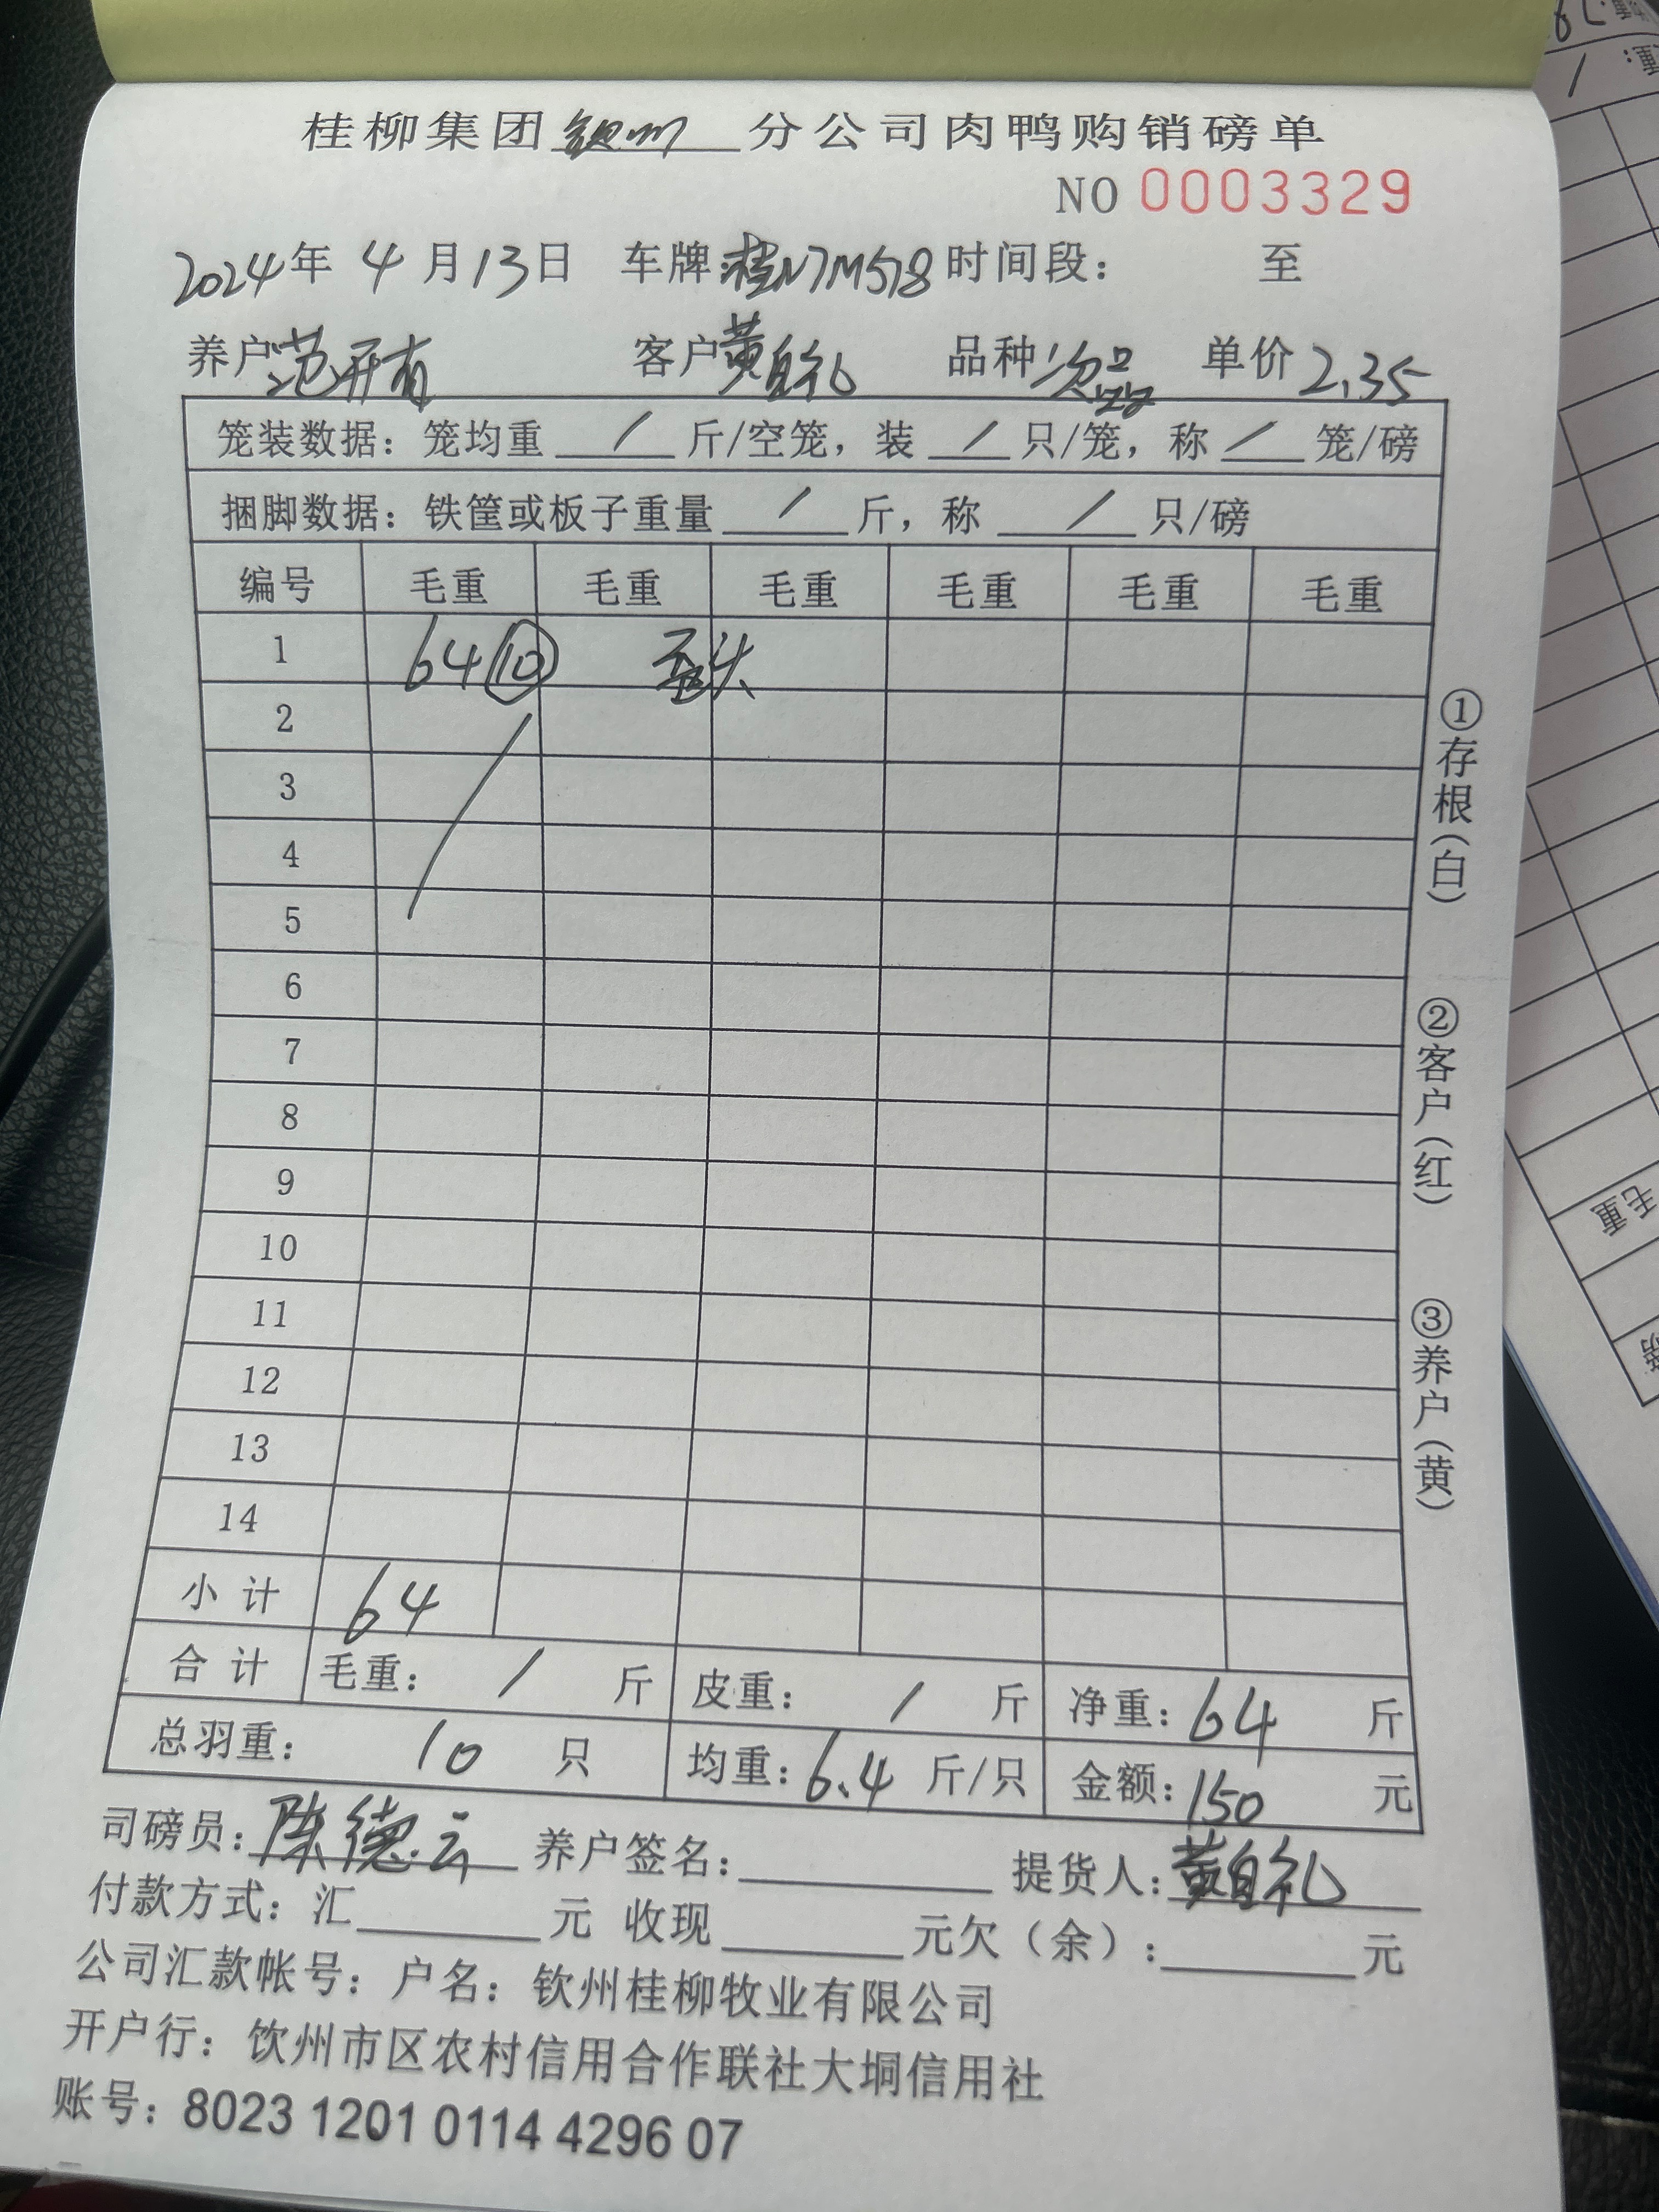 桂柳集团钦州分公司肉鸭购销磅单
NO 0003329
2024年 4月13日 车牌:桂N7M518 时间段: 至
养户:范开有 客户黄自礼 品种次品 单价2.35
笼装数据: 笼均重 / 斤/空笼, 装 / 只/笼, 称 / 笼/磅
捆脚数据: 铁筐或板子重量 / 斤, 称 / 只/磅
编号 毛重 毛重 毛重 毛重 毛重 毛重
1 64 ⑩ 歪头
2
3
4
5
6
7
8
9
10
11
12
13
14
小计 64
合计 毛重: / 斤 皮重: / 斤 净重: 64 斤
总羽重: 10 只 均重: 6.4 斤/只 金额: 150 元
司磅员: 陈德云 养户签名: 提货人: 黄自礼
付款方式: 汇 元 收现 元欠(余): 元
公司汇款帐号: 户名: 钦州桂柳牧业有限公司
开户行: 钦州市区农村信用合作联社大垌信用社
账号: 8023 1201 0114 4296 07
①存根(白)
②客户(红)
③养户(黄)
毛重